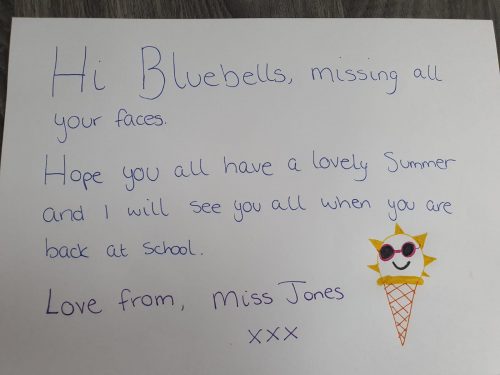 Hi Bluebells, missing all
your faces.
Hope you all have a lovely Summer
and I will see you all when you are
back at school.
Love from, Miss Jones
xxx